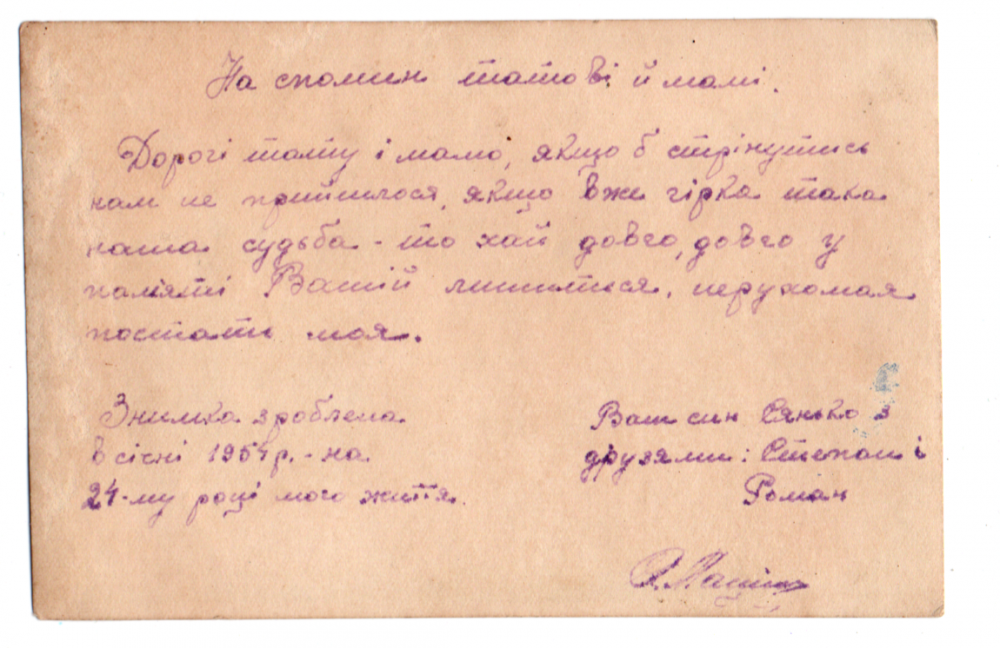 На спомин татові й мамі.
Дорогі тату і мамо, якщо б стрінутись
нам не прийшлося, якщо вже гірка така
наша судьба - то хай довго, довго у
памяті Вашій лишиться, нерухомая
постать моя.
Знимка зроблена
в січні 1954 р. - на
24-му році мого життя.
Ваш син Сянько з
друзями: Степан і
Роман